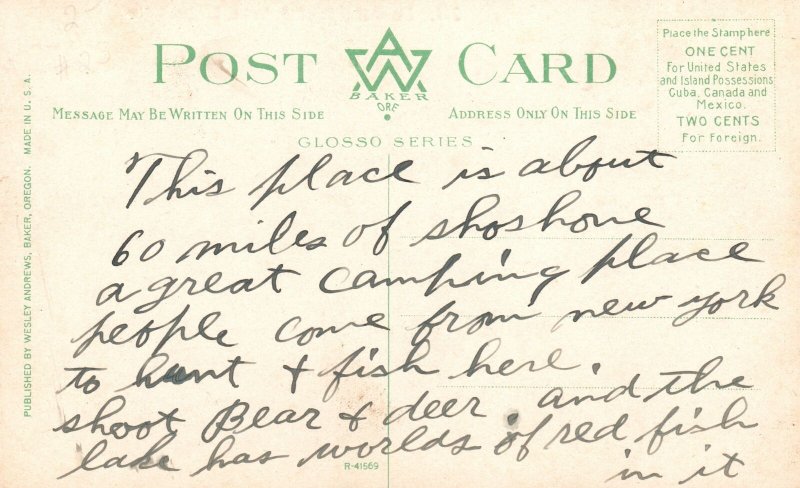 POST CARD
AW
BAKER
ORE
MESSAGE MAY BE WRITTEN ON THIS SIDE
ADDRESS ONLY ON THIS SIDE
GLOSSO SERIES
Place the Stamp here
ONE CENT
For United States
and Island Possessions
Cuba, Canada and
Mexico.
TWO CENTS
For Foreign.
PUBLISHED BY WESLEY ANDREWS, BAKER, OREGON. MADE IN U.S.A.
This place is about
60 miles of shoshone
a great camping place
people come from new york
to hunt + fish here.
shoot Bear + deer. and the
lake has worlds of red fish
in it
R-41569